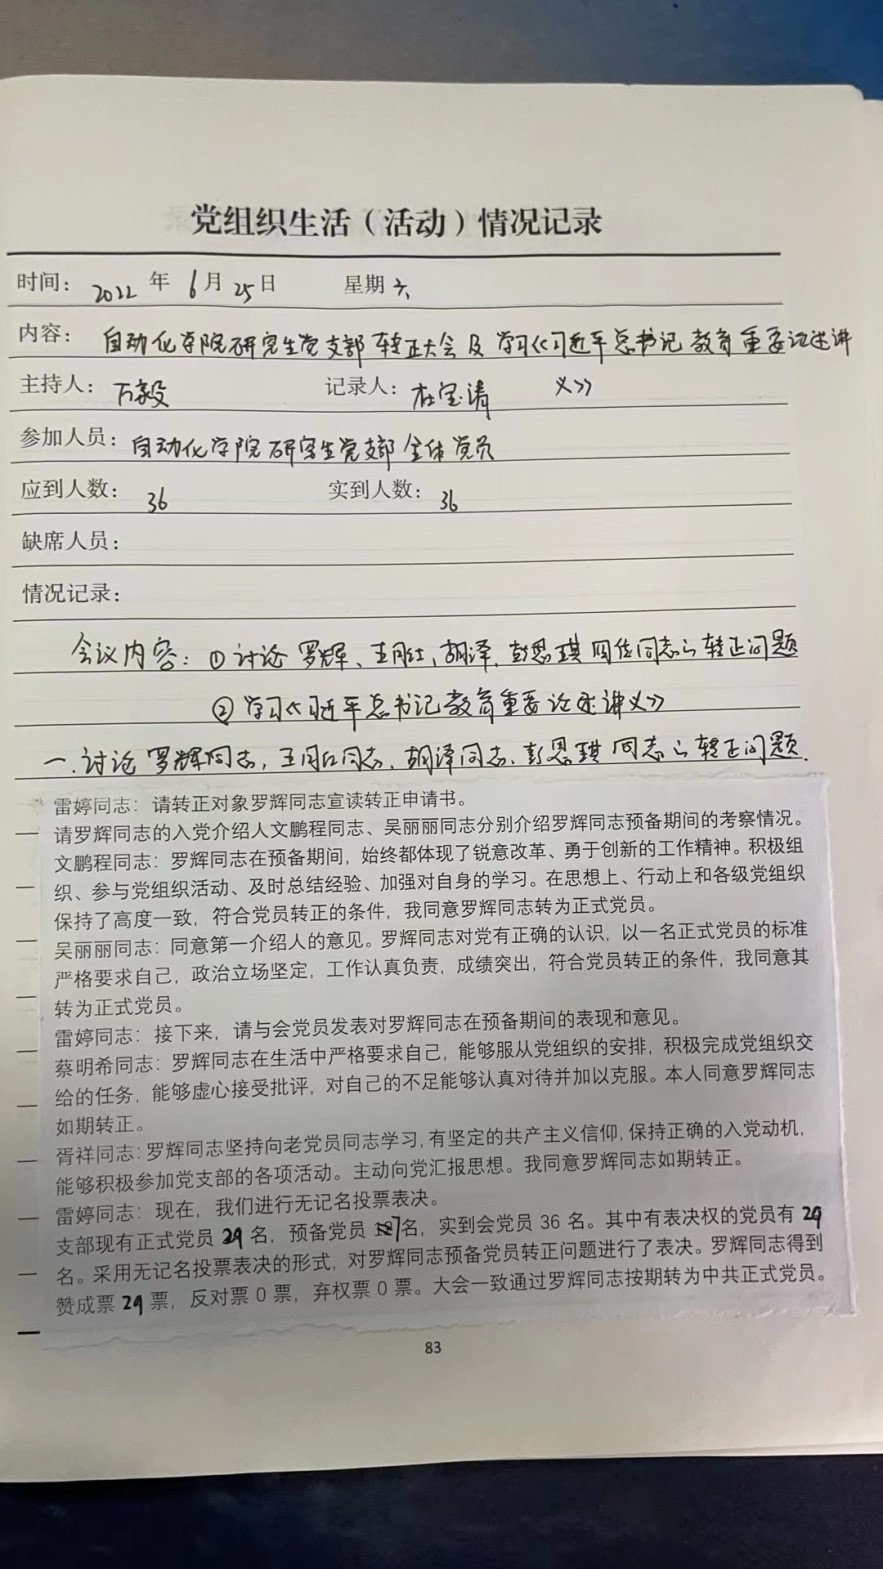 党组织生活（活动）情况记录
时间： 2022 年 6 月 25 日 星期 六
内容： 自动化学院研究生党支部转正大会及学习《习近平总书记教育重要论述讲
义》
主持人： 万毅 记录人： 杜宝清
参加人员： 自动化学院研究生党支部全体党员
应到人数： 36 实到人数： 36
缺席人员：
情况记录：
会议内容：①讨论罗辉、王月红、胡泽、彭思琪四位同志的转正问题
②学习《习近平总书记教育重要论述讲义》
一.讨论罗辉同志、王月红同志、胡泽同志、彭思琪同志的转正问题.
雷婷同志：请转正对象罗辉同志宣读转正申请书。
请罗辉同志的入党介绍人文鹏程同志、吴丽丽同志分别介绍罗辉同志预备期间的考察情况。
文鹏程同志：罗辉同志在预备期间，始终都体现了锐意改革、勇于创新的工作精神。积极组
织、参与党组织活动、及时总结经验、加强对自身的学习。在思想上、行动上和各级党组织
保持了高度一致，符合党员转正的条件，我同意罗辉同志转为正式党员。
吴丽丽同志：同意第一介绍人的意见。罗辉同志对党有正确的认识，以一名正式党员的标准
严格要求自己，政治立场坚定，工作认真负责，成绩突出，符合党员转正的条件，我同意其
转为正式党员。
雷婷同志：接下来，请与会党员发表对罗辉同志在预备期间的表现和意见。
蔡明希同志：罗辉同志在生活中严格要求自己，能够服从党组织的安排，积极完成党组织交
给的任务，能够虚心接受批评，对自己的不足能够认真对待并加以克服。本人同意罗辉同志
如期转正。
胥祥同志：罗辉同志坚持向老党员同志学习，有坚定的共产主义信仰，保持正确的入党动机，
能够积极参加党支部的各项活动。主动向党汇报思想。我同意罗辉同志如期转正。
雷婷同志：现在，我们进行无记名投票表决。
支部现有正式党员 29 名，预备党员 7名，实到会党员 36 名。其中有表决权的党员有 29
名。采用无记名投票表决的形式，对罗辉同志预备党员转正问题进行了表决。罗辉同志得到
赞成票 29 票，反对票 0 票，弃权票 0 票。大会一致通过罗辉同志按期转为中共正式党员。
83